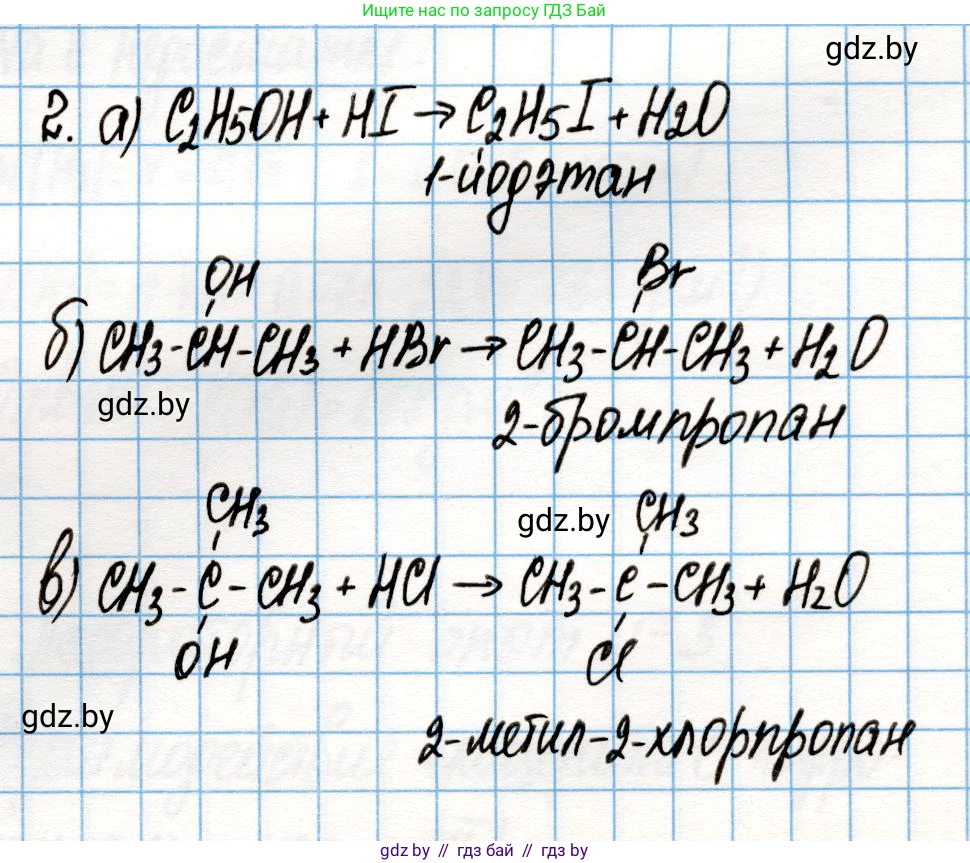 Ищите нас по запросу ГДЗ Бай
gdz.by
2. а) C2H5OH + HI → C2H5I + H2O
1-йодэтан
OH
Br
б) CH3-CH-CH3 + HBr → CH3-CH-CH3 + H2O
gdz.by
2-бромпропан
CH3
gdz.by
CH3
в) CH3-C-CH3 + HCl → CH3-C-CH3 + H2O
OH
Cl
gdz.by
2-метил-2-хлорпропан
gdz.by // гдз бай // гдз by